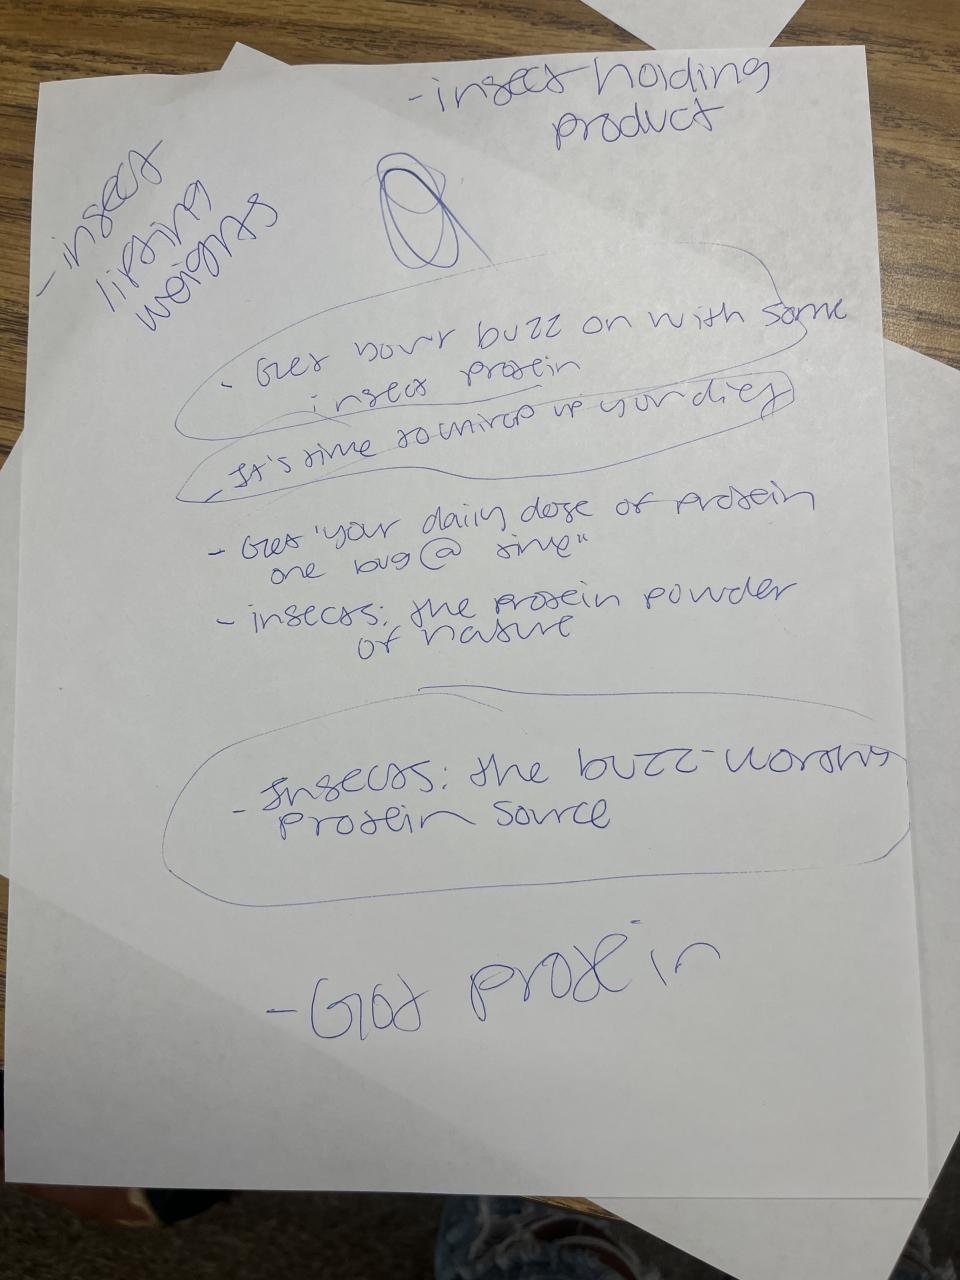 - insect holding
product
- insect
lifting
weights
- Get your buzz on with some
insect protein
- It's time to chirp up your diet
- Get "your daily dose of protein
one bug @ time"
- insects: the protein powder
of nature
- Insects: the buzz-worthy
protein source
- Got protein